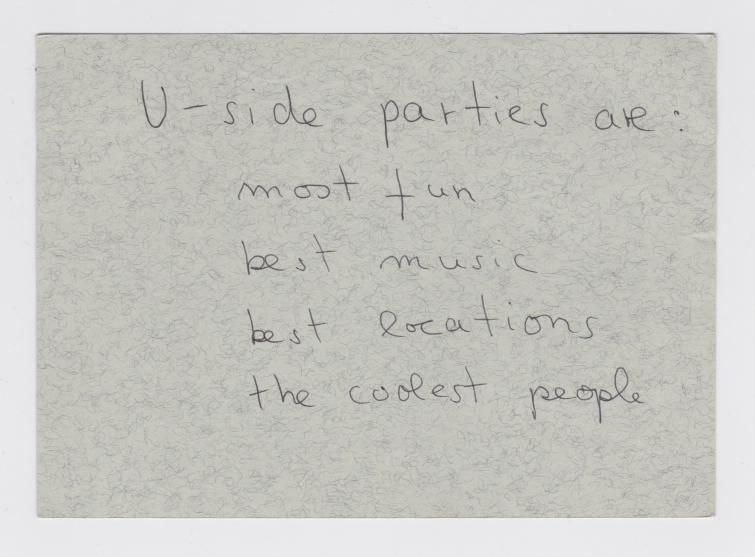 U-side parties are:
most fun
best music
best locations
the coolest people